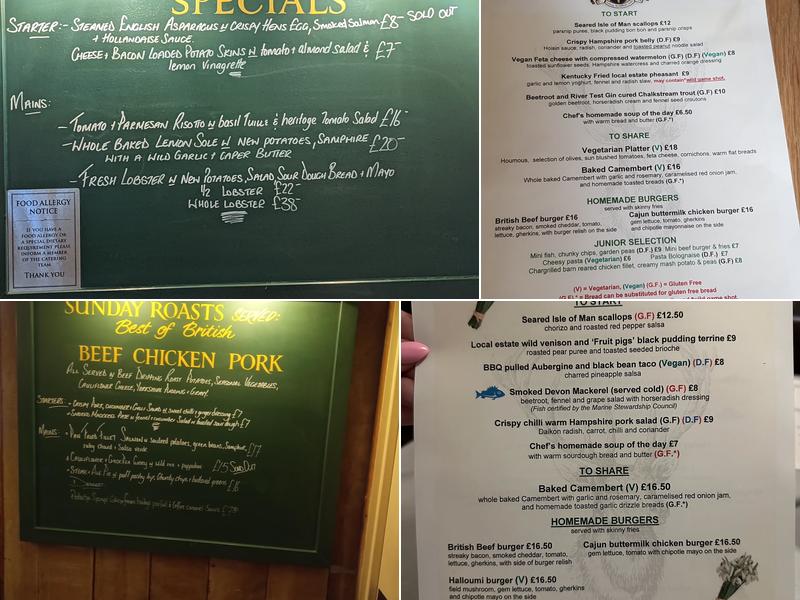 SPECIALS
STARTER:- STEAMED ENGLISH ASPARAGUS W CRISPY HENS EGG, SMOKED SALMON £8- SOLD OUT
+ HOLLANDAISE SAUCE.
CHEESE + BACON LOADED POTATO SKINS W TOMATO + ALMOND SALAD & £7
LEMON VINAGRETTE
MAINS:
- TOMATO + PARMESAN RISOTTO W BASIL TUILE & HERITAGE TOMATO SALAD £16-
- WHOLE BAKED LEMON SOLE W NEW POTATOES, SAMPHIRE £20-
WITH A WILD GARLIC + CAPER BUTTER
- FRESH LOBSTER W NEW POTATOES, SALAD, SOUR DOUGH BREAD + MAYO
1/2 LOBSTER £22-
WHOLE LOBSTER £38-
FOOD ALLERGY
NOTICE
IF YOU HAVE A
FOOD ALLERGY OR
A SPECIAL DIETARY
REQUIREMENT PLEASE
INFORM A MEMBER
OF THE CATERING
TEAM
THANK YOU
TO START
Seared Isle of Man scallops £12
parsnip puree, black pudding bon bon and parsnip crisps
Crispy Hampshire pork belly (D.F) £9
Hoisin sauce, radish, coriander and toasted peanut noodle salad
Vegan Feta cheese with compressed watermelon (G.F) (D.F) (Vegan) £8
toasted sunflower seeds, Hampshire watercress and charred orange dressing
Kentucky Fried local estate pheasant £9
garlic and lemon yoghurt, fennel and radish slaw, may contain*wild game shot.
Beetroot and River Test Gin cured Chalkstream trout (G.F) £10
golden beetroot, horseradish cream and fennel seed croutons
Chef's homemade soup of the day £6.50
with warm bread and butter (G.F.*)
TO SHARE
Vegetarian Platter (V) £18
Houmous, selection of olives, sun blushed tomatoes, feta cheese, cornichons, warm flat breads
Baked Camembert (V) £16
Whole baked Camembert with garlic and rosemary, caramelised red onion jam,
and homemade toasted breads (G.F.*)
HOMEMADE BURGERS
served with skinny fries
British Beef burger £16
streaky bacon, smoked cheddar, tomato,
lettuce, gherkins, with burger relish on the side
Cajun buttermilk chicken burger £16
gem lettuce, tomato, gherkins
and chipotle mayonnaise on the side
JUNIOR SELECTION
Mini fish, chunky chips, garden peas (D.F.) £9 Mini beef burger & fries £7
Cheesy pasta (Vegetarian) £6 Pasta Bolognaise (D.F.) £7
Chargrilled barn reared chicken fillet, creamy mash potato & peas (G.F) £8
(V) = Vegetarian, (Vegan) (G.F.) = Gluten Free
(G.F.*) = Bread can be substituted for gluten free bread
SUNDAY ROASTS SERVED:
Best of British
BEEF CHICKEN PORK
ALL SERVED W BEEF DRIPPING ROAST POTATOES, SEASONAL VEGETABLES,
CAULIFLOWER CHEESE, YORKSHIRE PUDDING + GRAVY.
STARTERS:
MAINS:
£17
£15 SOLD OUT
£16
TO START
Seared Isle of Man scallops (G.F) £12.50
chorizo and roasted red pepper salsa
Local estate wild venison and 'Fruit pigs' black pudding terrine £9
roasted pear puree and toasted seeded brioche
BBQ pulled Aubergine and black bean taco (Vegan) (D.F) £8
charred pineapple salsa
Smoked Devon Mackerel (served cold) (G.F) £8
beetroot, fennel and grape salad with horseradish dressing
(Fish certified by the Marine Stewardship Council)
Crispy chilli warm Hampshire pork salad (G.F) (D.F) £9
Daikon radish, carrot, chilli and coriander
Chef's homemade soup of the day £7
with warm sourdough bread and butter (G.F.*)
TO SHARE
Baked Camembert (V) £16.50
whole baked Camembert with garlic and rosemary, caramelised red onion jam,
and homemade toasted garlic drizzle breads (G.F.*)
HOMEMADE BURGERS
served with skinny fries
British Beef burger £16.50
streaky bacon, smoked cheddar, tomato,
lettuce, gherkins, with side of burger relish
Cajun buttermilk chicken burger £16.50
gem lettuce, tomato with chipotle mayo on the side
Halloumi burger (V) £16.50
field mushroom, gem lettuce, tomato, gherkins
and chipotle mayo on the side